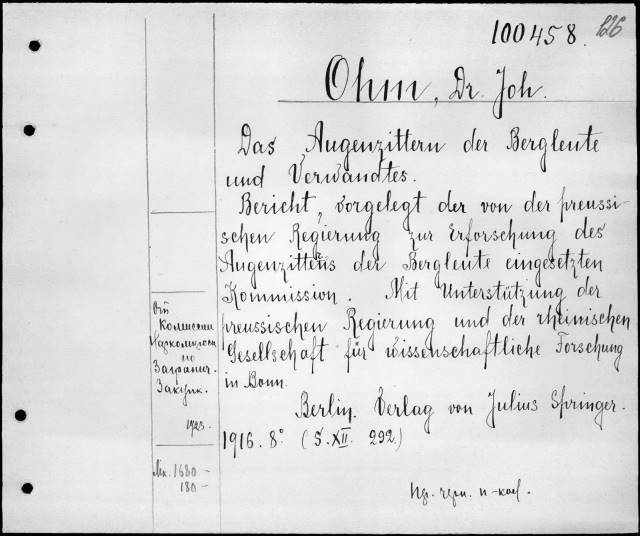 100458. 126
Ohm, Dr. Joh.
Das Augenzittern der Bergleute
und Verwandtes.
Bericht, vorgelegt der von der preussi-
schen Regierung zur Erforschung des
Augenzitterns der Bergleute eingesetzten
Kommission. Mit Unterstützung der
preussischen Regierung und der rheinischen
Gesellschaft für wissenschaftliche Forschung
in Bonn.
Berlin. Verlag von Julius Springer.
1916. 8° (S. XII. 292.)
От
Комиссии
Наркомпроса
по
Загранич.
Закупк.
1923.
Мк. 1680 -
180 -